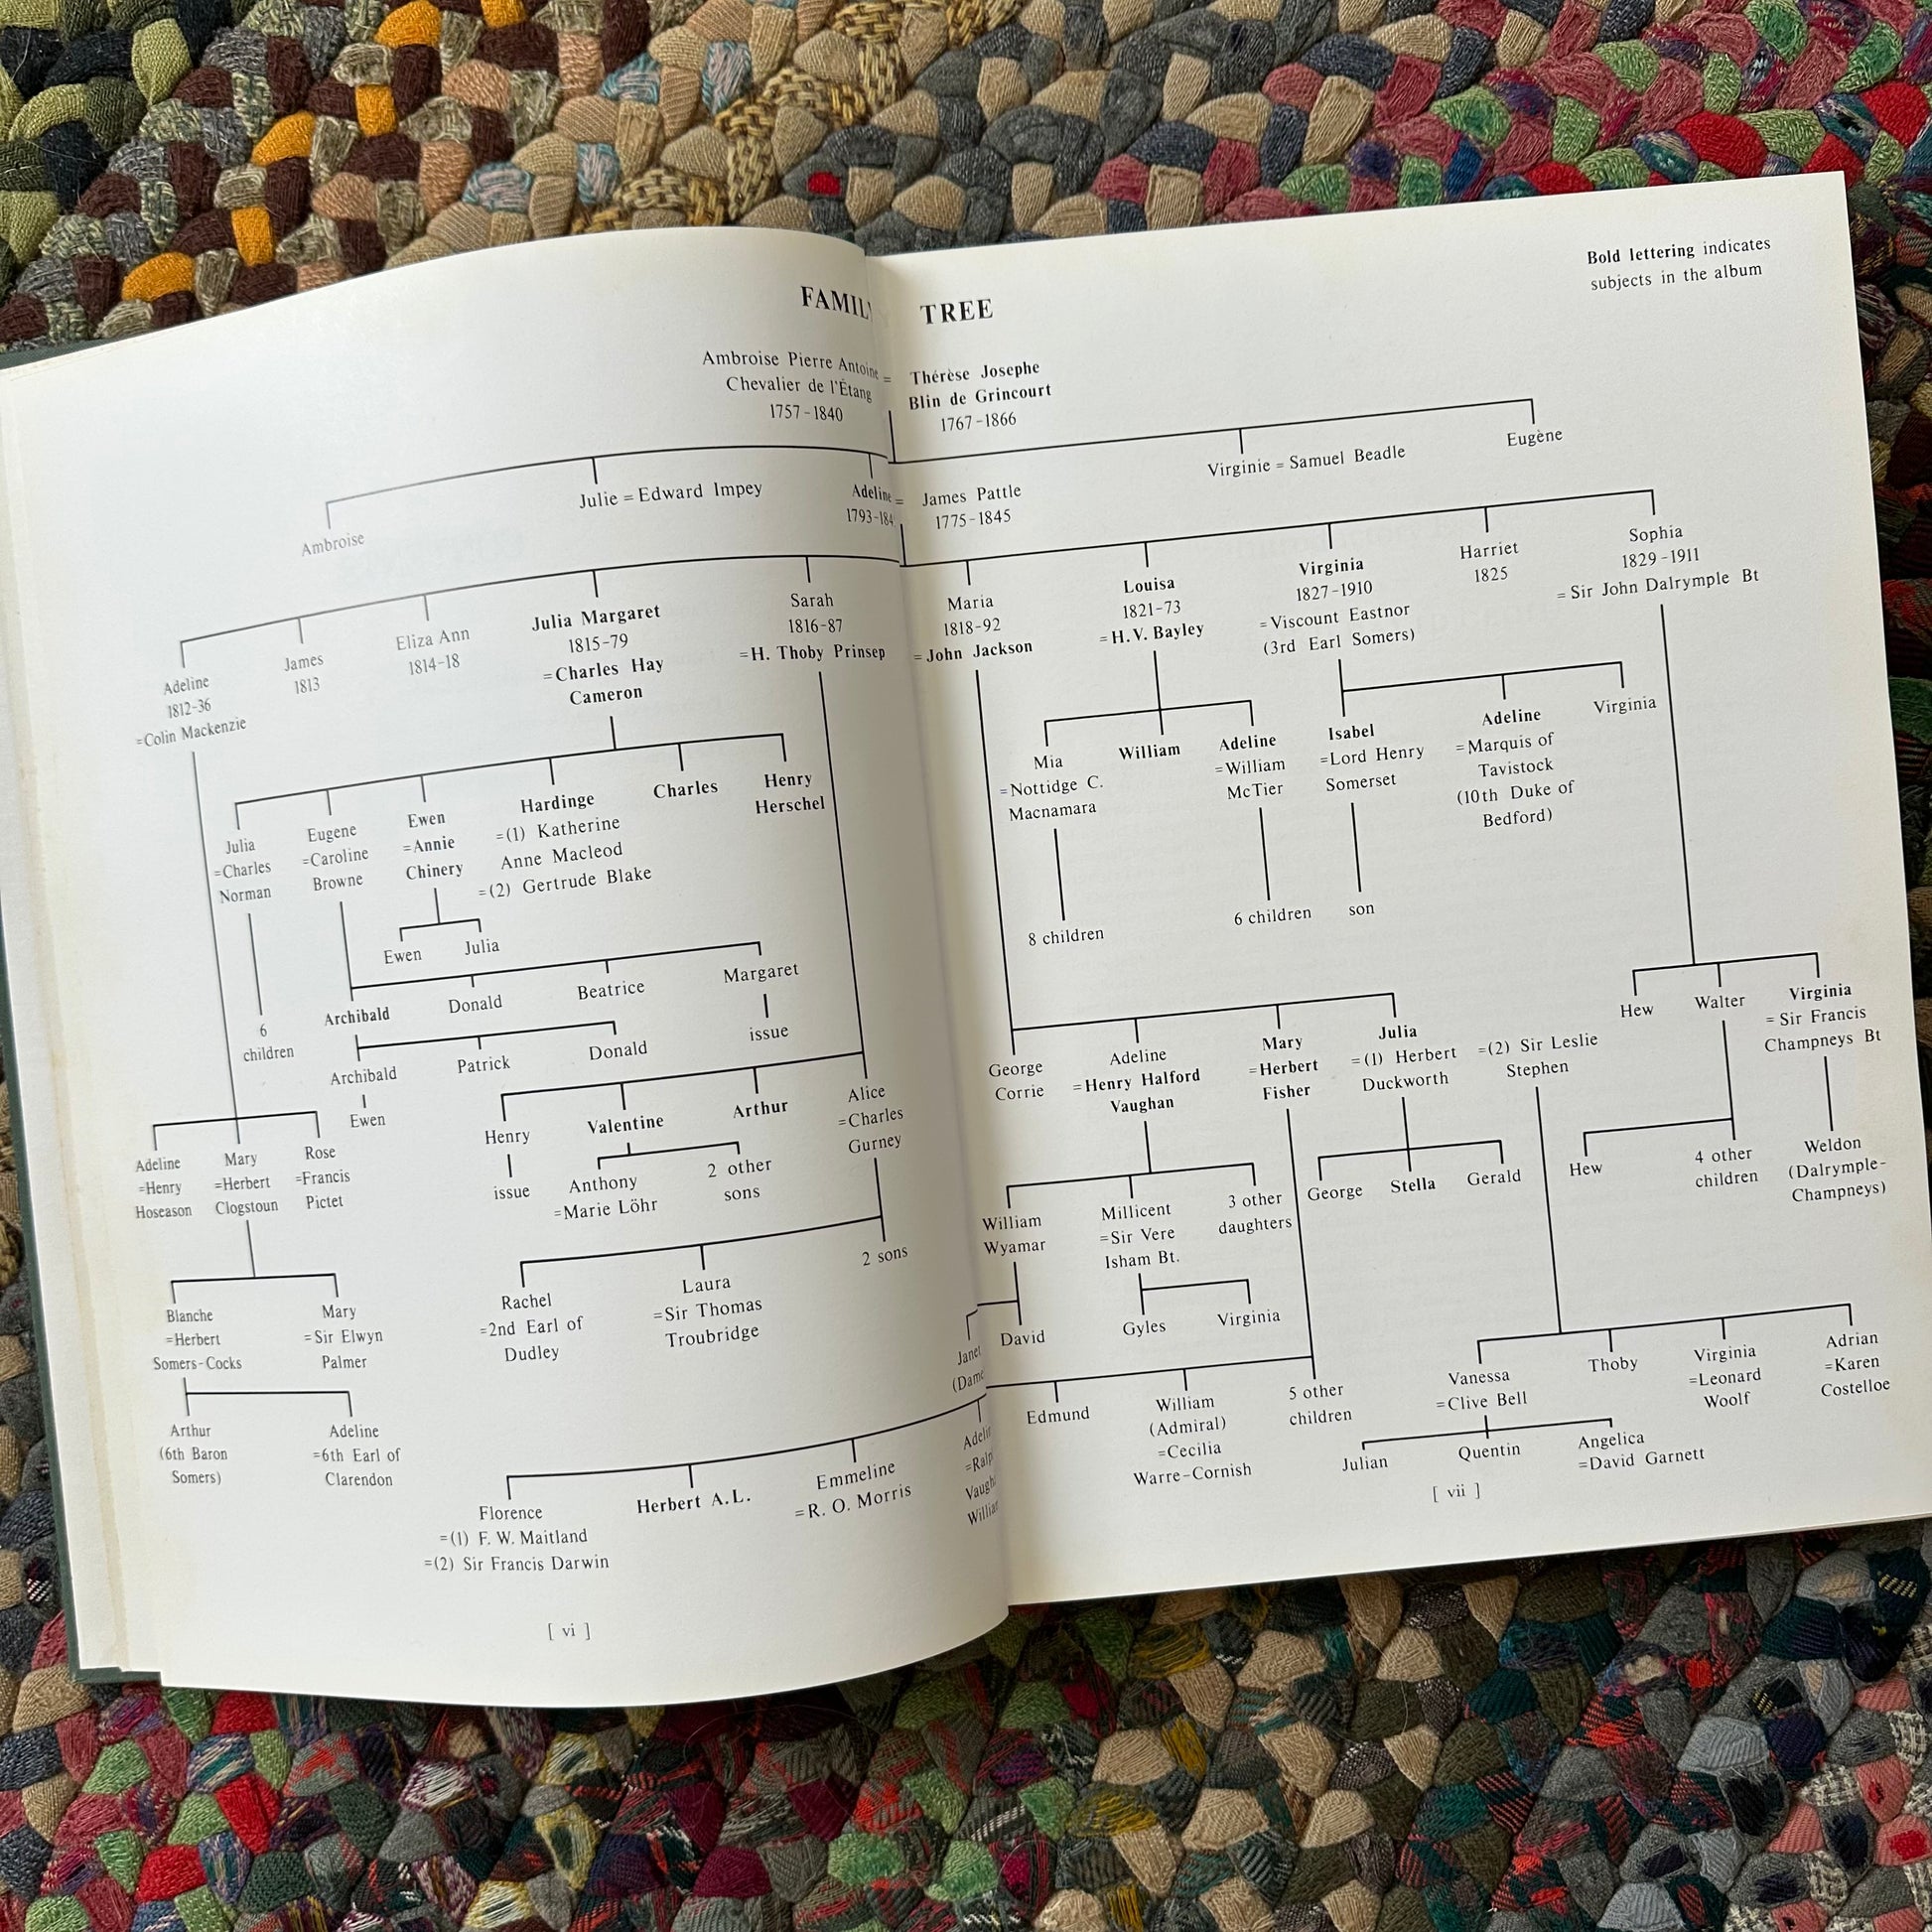 FAMILY TREE
Bold lettering indicates
subjects in the album
Ambroise Pierre Antoine =
Chevalier de l'Étang
1757-1840
Thérèse Josephe
Blin de Grincourt
1767-1866
Ambroise
Julie = Edward Impey
Adeline =
1793-184
James Pattle
1775-1845
Virginie = Samuel Beadle
Eugène
Adeline
1812-36
=Colin Mackenzie
James
1813
Eliza Ann
1814-18
Julia Margaret
1815-79
=Charles Hay
Cameron
Sarah
1816-87
=H. Thoby Prinsep
Maria
1818-92
=John Jackson
Louisa
1821-73
=H.V. Bayley
Virginia
1827-1910
=Viscount Eastnor
(3rd Earl Somers)
Harriet
1825
Sophia
1829-1911
=Sir John Dalrymple Bt
Julia
=Charles
Norman
Eugene
=Caroline
Browne
Ewen
=Annie
Chinery
Hardinge
=(1) Katherine
Anne Macleod
=(2) Gertrude Blake
Charles
Henry
Herschel
Mia
=Nottidge C.
Macnamara
William
Adeline
=William
McTier
Isabel
=Lord Henry
Somerset
Adeline
=Marquis of
Tavistock
(10th Duke of
Bedford)
Virginia
Ewen
Julia
8 children
6 children
son
6
children
Archibald
Donald
Beatrice
Margaret
issue
Archibald
Patrick
Donald
Ewen
Hew
Walter
Virginia
= Sir Francis
Champneys Bt
George
Corrie
Adeline
=Henry Halford
Vaughan
Mary
=Herbert
Fisher
Julia
=(1) Herbert
Duckworth
=(2) Sir Leslie
Stephen
Adeline
=Henry
Hoseason
Mary
=Herbert
Clogstoun
Rose
=Francis
Pictet
Henry
issue
Valentine
Arthur
Alice
=Charles
Gurney
Anthony
=Marie Löhr
2 other
sons
William
Wyamar
Millicent
=Sir Vere
Isham Bt.
3 other
daughters
George
Stella
Gerald
Hew
4 other
children
Weldon
(Dalrymple-
Champneys)
Blanche
=Herbert
Somers-Cocks
Mary
=Sir Elwyn
Palmer
Rachel
=2nd Earl of
Dudley
Laura
=Sir Thomas
Troubridge
2 sons
Janet
(Dame
David
Gyles
Virginia
Arthur
(6th Baron
Somers)
Adeline
=6th Earl of
Clarendon
Edmund
William
(Admiral)
=Cecilia
Warre-Cornish
5 other
children
Vanessa
=Clive Bell
Thoby
Virginia
=Leonard
Woolf
Adrian
=Karen
Costelloe
Julian
Quentin
Angelica
=David Garnett
Florence
=(1) F. W. Maitland
=(2) Sir Francis Darwin
Herbert A.L.
Emmeline
=R. O. Morris
[ vi ]
[ vii ]